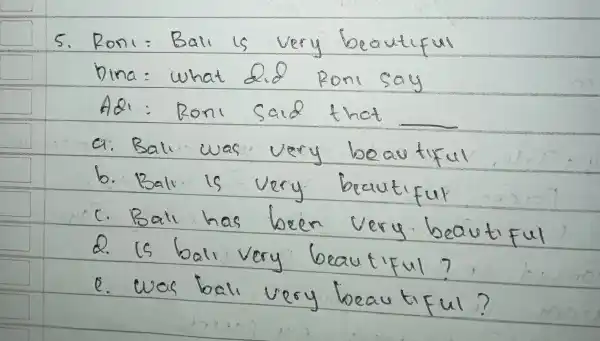 5. Roni : Bali is very beautiful
Dina : what did Roni say
Adi : Roni said that ____
a. Bali was very beautiful
b. Bali is very beautiful
c. Bali has been very beautiful
d. is bali very beautiful ?
e. was bali very beautiful ?